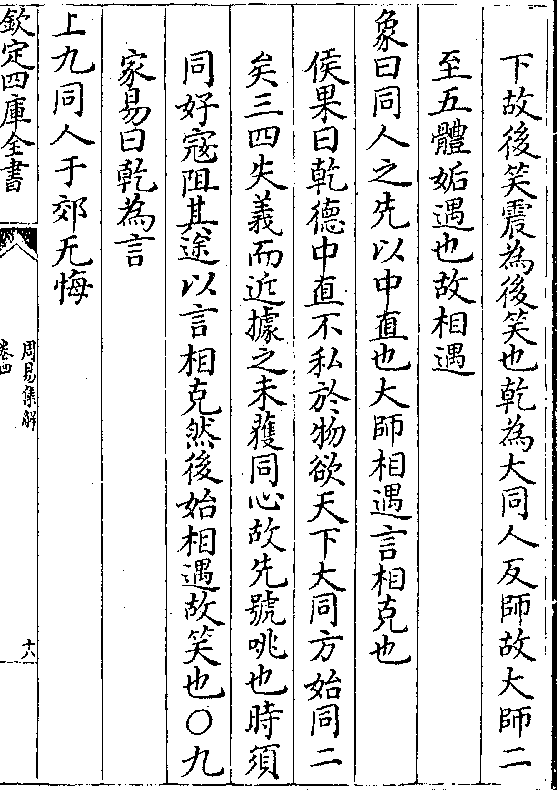 下故後笑震為後笑也乾為大同人反師故大師二
至五體姤遇也故相遇
象曰同人之先以中直也大師相遇言相克也
侯果曰乾德中直不私於物欲天下大同方始同二
矣三四失義而近據之未獲同心故先號咷也時須
同好寇阻其途以言相克然後始相遇故笑也○九
家易曰乾為言
上九同人于郊无悔
欽定四庫全書
周易集解
卷四
十八